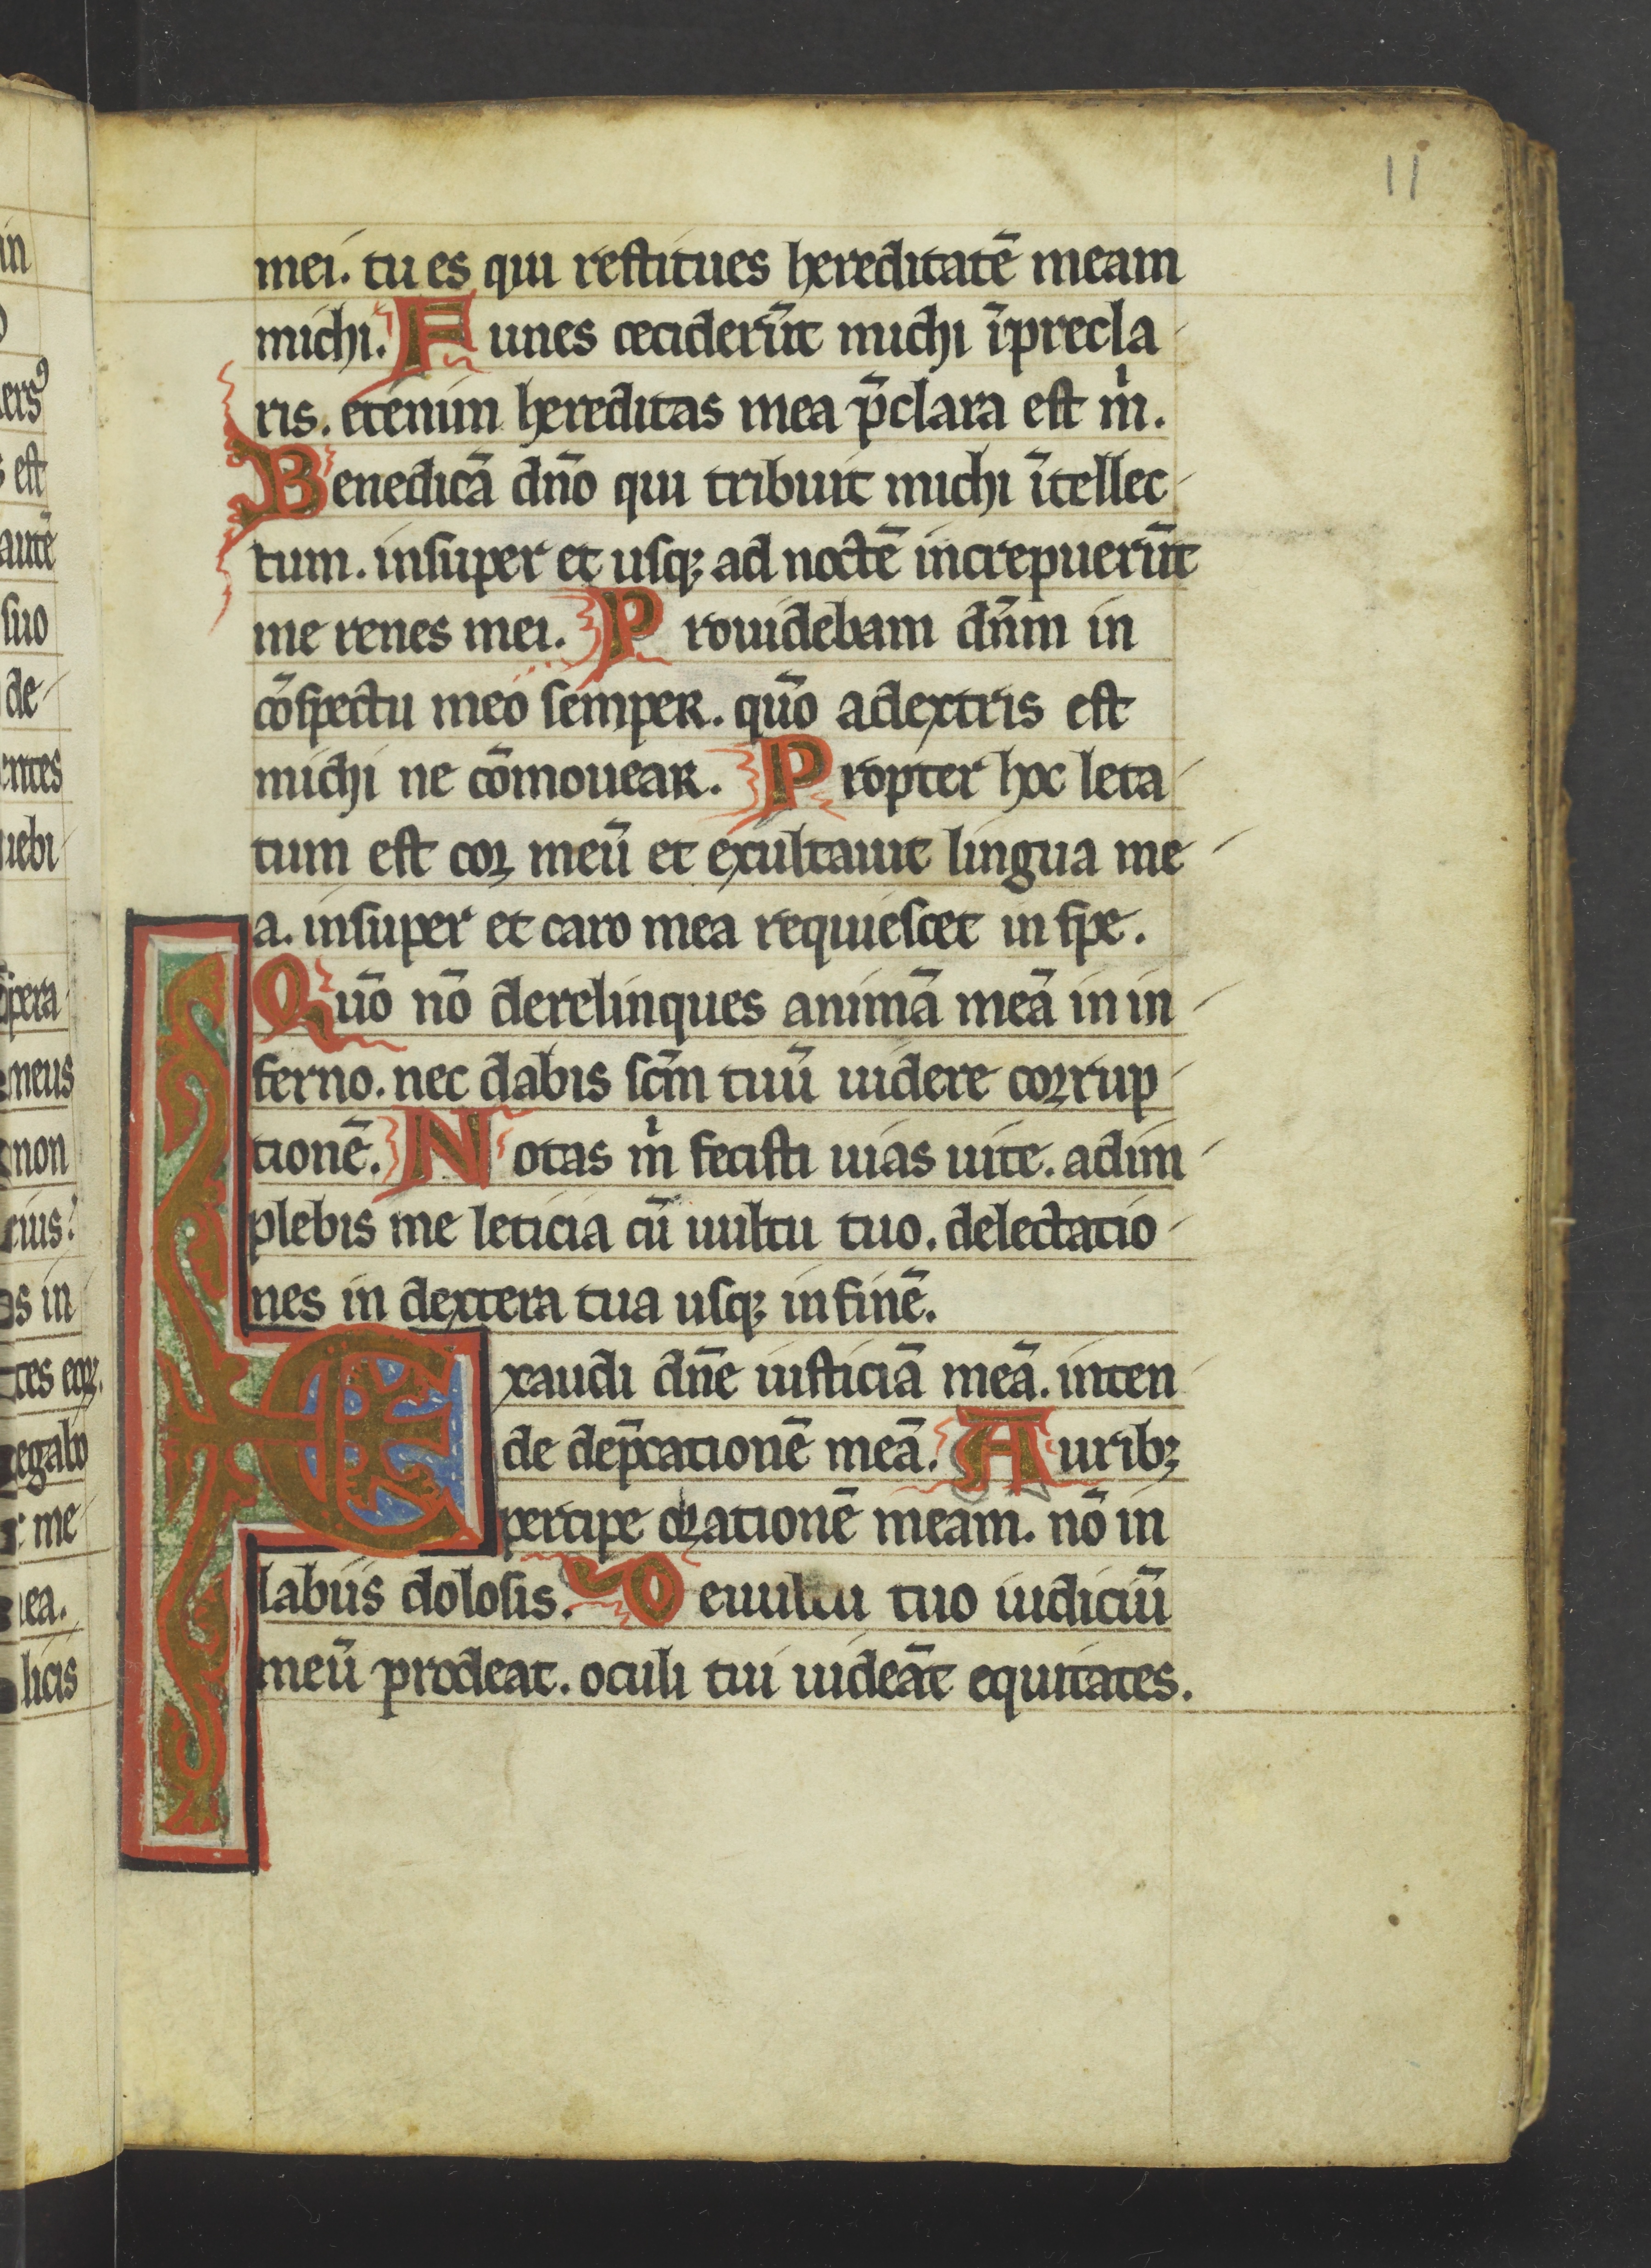 11
mei. tu es qui restitues hereditatē meam
michi. Funes ceciderūt michi ī precla-
ris. etenim hereditas mea p̄clara est m̍.
Benedicā dn̄o qui tribuit michi ītellec-
tum. insuper et usq; ad noctē increpuerūt
me renes mei. Prouidebam dn̄m in
cōspectu meo semper. qūo adextris est
michi ne cōmouear. Propter hoc leta-
tum est cor meū et exultauit lingua me-
a. insuper et caro mea requiescet in spe.
Qūo nō derelinques animā meā in in-
ferno. nec dabis sc̄m tuū uidere corrup-
tionē. Notas m̍ fecisti uias uite. adim-
plebis me leticia cū uultu tuo. delectatio-
nes in dextera tua usq; in finē.
Exaudi dn̄e iusticiā meā. inten-
de dep̄cationē meā. Aurib;
percipe orationē meam. nō in
labiis dolosis. De uultu tuo iudiciū
meū prodeat. oculi tui uideāt equitates.